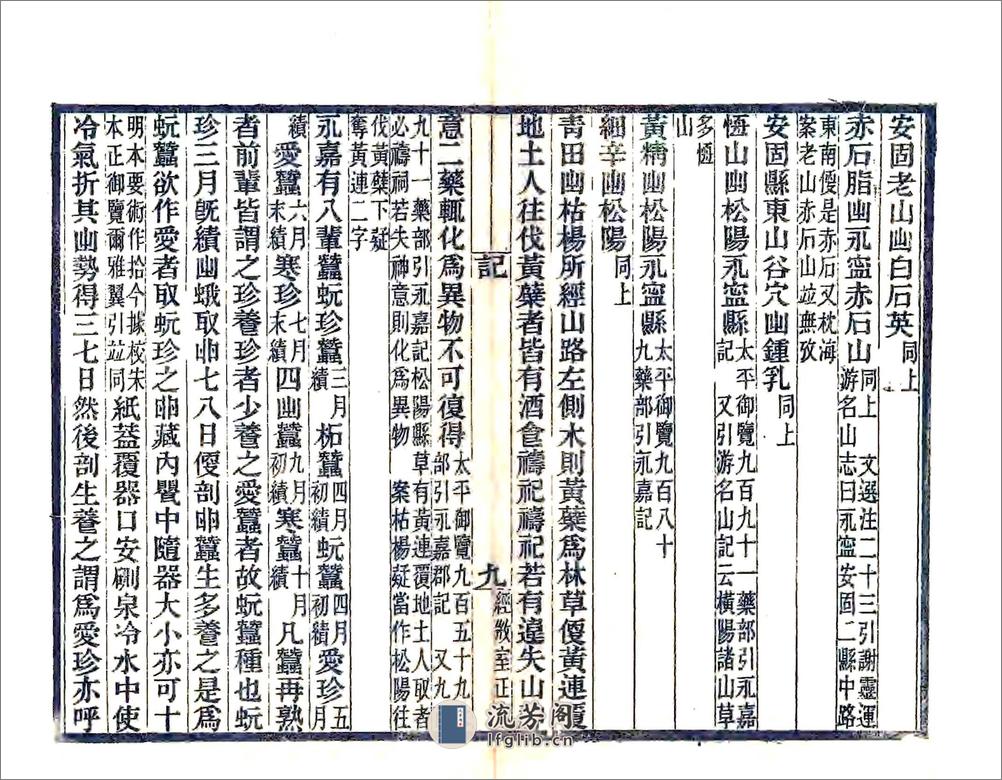 安固老山幽白石英同上
赤石脂幽永寧赤石山同上 文選注二十三引謝靈運游名山志曰永寧安固二縣中路
東南便是赤石又枕海案老山赤石山並無攷
安固縣東山谷穴幽鍾乳同上
恆山幽松陽永寧縣太平御覽九百九十一藥部引永嘉記 又引游名山記云橫陽諸山草
多恆山
黃精幽松陽永寧縣太平御覽九百八十九藥部引永嘉記
細辛幽松陽同上
青田幽枯楊所經山路左側木則黃蘗爲林草便黃連覆
地土人往伐黃蘗者皆有酒食禱祀禱祀若有違失山
記 九 經微室正
意二藥輒化爲異物不可復得太平御覽九百五十九部引永嘉郡記 又九
九十一藥部引永嘉記松陽縣草有黃連覆地土人取者必禱祠若失神意則化爲異物 案枯楊疑當作松陽往
伐黃蘗下疑奪黃連二字
永嘉有八輩蠶蚖珍蠶三月績柘蠶四月初績蚖蠶四月初績愛珍五月
績愛蠶六月末績寒珍七月末績四幽蠶九月初績寒蠶十月績凡蠶再熟
者前輩皆謂之珍養珍者少養之愛蠶者故蚖蠶種也蚖
珍三月旣績幽蛾取卵七八日便剖卵蠶生多養之是爲
蚖蠶欲作愛者取蚖珍之卵藏內甖中隨器大小亦可十
明本要術作拾今據校宋本正御覽爾雅翼引並同紙蓋覆器口安硎泉冷水中使
冷氣折其幽勢得三七日然後剖生養之謂爲愛珍亦呼
流芳阁
lfglib.cn